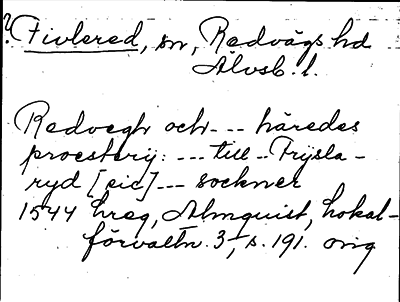 ? Fivlered, sn, Redvägs hd
Älvsb. l.
Redvegh och --- häredes
proesterij: --- till -- Frysla-
ryd [sic] --- sockner
1544 hreg, Almquist, Lokal-
förvaltn. 3, s. 191. orig